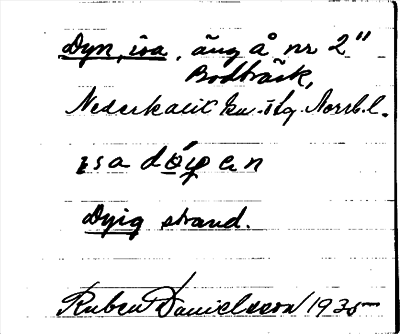 Dyn, isa, äng å nr 2"
Bodträsk,
Nederkalix kn. o tg. Norrb. l.
isa
Dyig strand.
Ruben Danielsson 1935